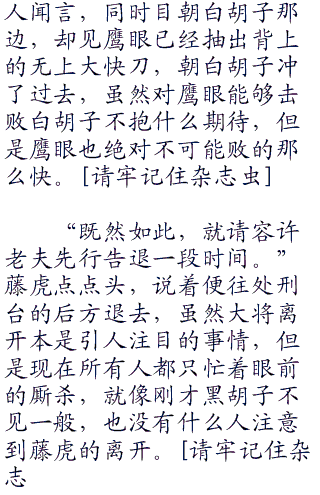 人闻言，同时目朝白胡子那
边，却见鹰眼已经抽出背上
的无上大快刀，朝白胡子冲
了过去，虽然对鹰眼能够击
败白胡子不抱什么期待，但
是鹰眼也绝对不可能败的那
么快。[请牢记住杂志虫]
“既然如此，就请容许
老夫先行告退一段时间。”
藤虎点点头，说着便往处刑
台的后方退去，虽然大将离
开本是引人注目的事情，但
是现在所有人都只忙着眼前
的厮杀，就像刚才黑胡子不
见一般，也没有什么人注意
到藤虎的离开。[请牢记住杂
志